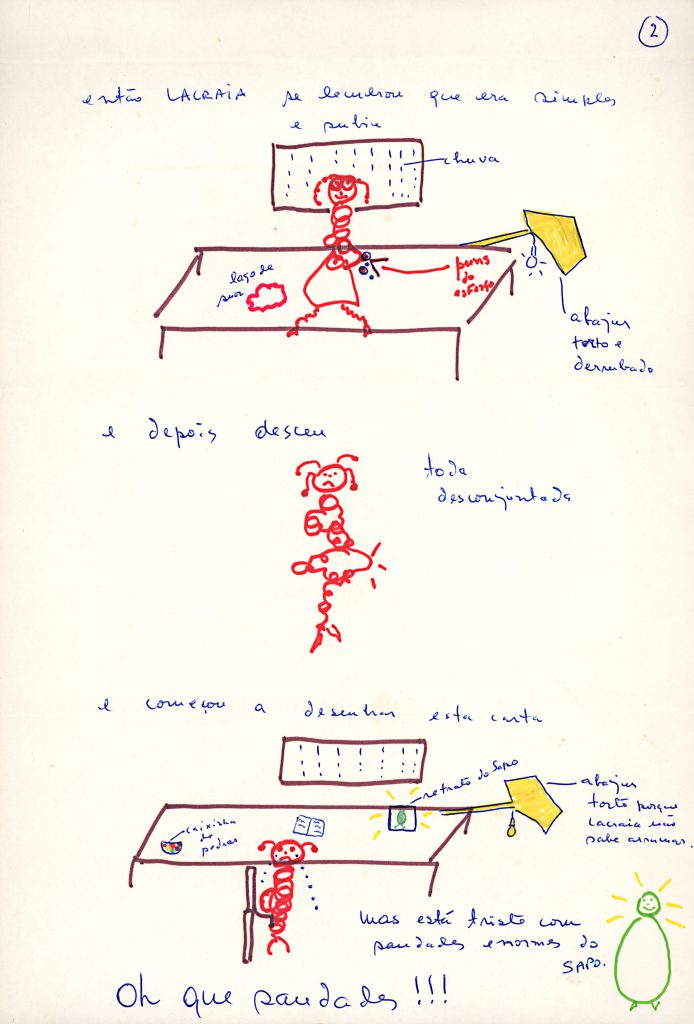 2
então LACRAIA se lembrou que era simples
e subiu
chuva
lago de
suor
puns
do
esforço
abajur
torto e
derrubado
e depois desceu
toda
desconjuntada
e começou a desenhar esta carta
retrato do Sapo
abajur
torto porque
Lacraia não
sabe arrumar.
caixinha
de
pedras
mas está triste com
saudades enormes do
SAPO.
Oh que saudades!!!